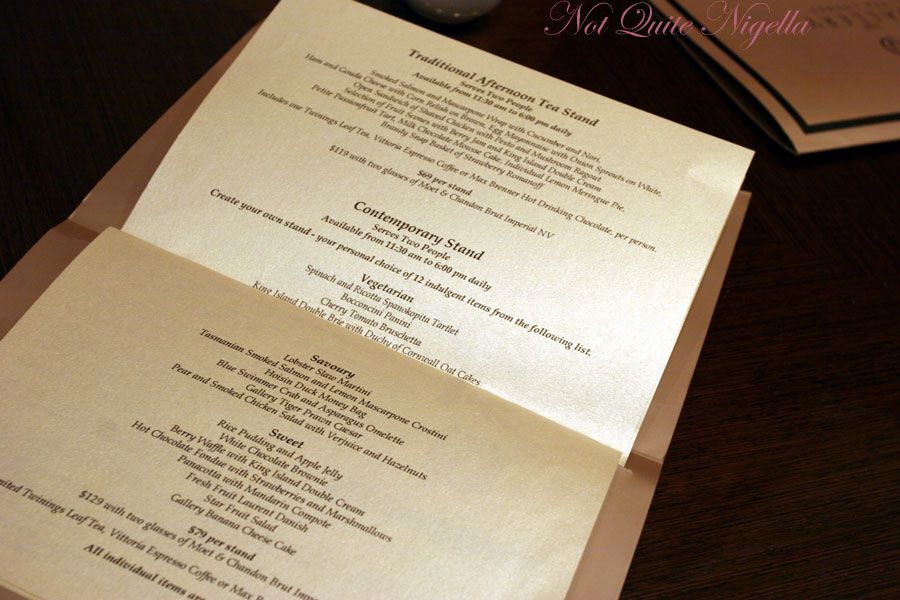 Not Quite Nigella
Traditional Afternoon Tea Stand
Serves Two People
Available from 11:30 am to 6:00 pm daily
Smoked Salmon and Mascarpone Wrap with Cucumber and Nori,
Ham and Gouda Cheese with Corn Relish on Brown, Egg Mayonnaise with Onion Sprouts on White,
Open Sandwich of Shaved Chicken with Pesto and Mushroom Ragout
Selection of Fruit Scones with Berry Jam and King Island Double Cream
Petite Passionfruit Tart, Milk Chocolate Mousse Cake, Individual Lemon Meringue Pie,
Brandy Snap Basket of Strawberry Romanoff
Includes one Twinings Leaf Tea, Vittoria Espresso Coffee or Max Brenner Hot Drinking Chocolate, per person.
$69 per stand
$119 with two glasses of Moet & Chandon Brut Imperial NV
Contemporary Stand
Serves Two People
Available from 11:30 am to 6:00 pm daily
Create your own stand - your personal choice of 12 indulgent items from the following list.
Vegetarian
Spinach and Ricotta Spanokopita Tartlet
Bocconcini Panini
Cherry Tomato Bruschetta
King Island Double Brie with Duchy of Cornwall Oat Cakes
Savoury
Lobster Slaw Martini
Tasmanian Smoked Salmon and Lemon Mascarpone Crostini
Hoisin Duck Money Bag
Blue Swimmer Crab and Asparagus Omelette
Gallery Tiger Prawn Caesar
Pear and Smoked Chicken Salad with Verjuice and Hazelnuts
Sweet
Rice Pudding and Apple Jelly
White Chocolate Brownie
Berry Waffle with King Island Double Cream
Hot Chocolate Fondue with Strawberries and Marshmallows
Panacotta with Mandarin Compote
Fresh Fruit Laurent Danish
Star Fruit Salad
Gallery Banana Cheese Cake
$79 per stand
$129 with two glasses of Moet & Chandon Brut Imperial
Twinings Leaf Tea, Vittoria Espresso Coffee or Max
All individual items are